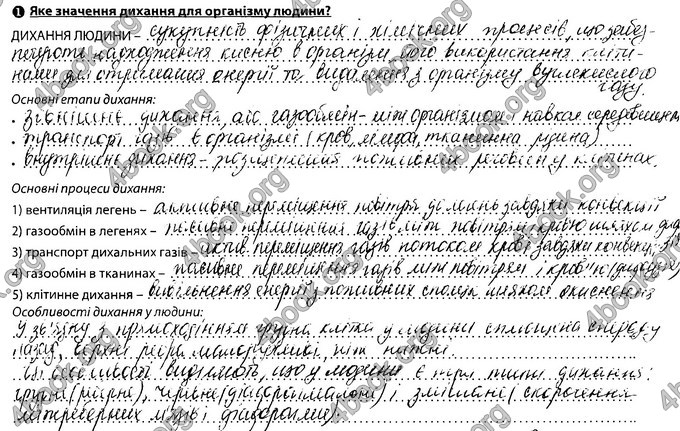 1 Яке значення дихання для організму людини?
ДИХАННЯ ЛЮДИНИ – сукупність фізичних і хімічних процесів, що забез-
печують надходження кисню в організм, його використання кліти-
нами для отримання енергії та видалення з організму вуглекислого
газу.
Основні етапи дихання:
• зовнішнє дихання, або газообмін – між організмом і навкол. середовищем
• транспорт газів в організмі (кров, лімфа, тканинна рідина)
• внутрішнє дихання – розщеплення поживних речовин у клітинах.
Основні процеси дихання:
1) вентиляція легень – активне переміщення повітря до легень завдяки конвекції
2) газообмін в легенях – пасивне переміщення газів між повітрям і кров'ю шляхом
3) транспорт дихальних газів – актив. переміщення газів потоком крові завдяки конвекції
4) газообмін в тканинах – пасивне переміщення газів між повітрям і кров'ю
5) клітинне дихання – вивільнення енергії з поживних сполук шляхом окиснення
Особливості дихання у людини:
У зв'язку з прямоходінням грудна клітка у людини сплощена спереду
назад, верхні ребра малорухливі, ніж нижні.
особливості виділяють, що у людини є три типи дихання:
грудне (реберне), черевне (діафрагмальне) і змішане (скорочення
міжреберних м'язів і діафрагми).
4book.org